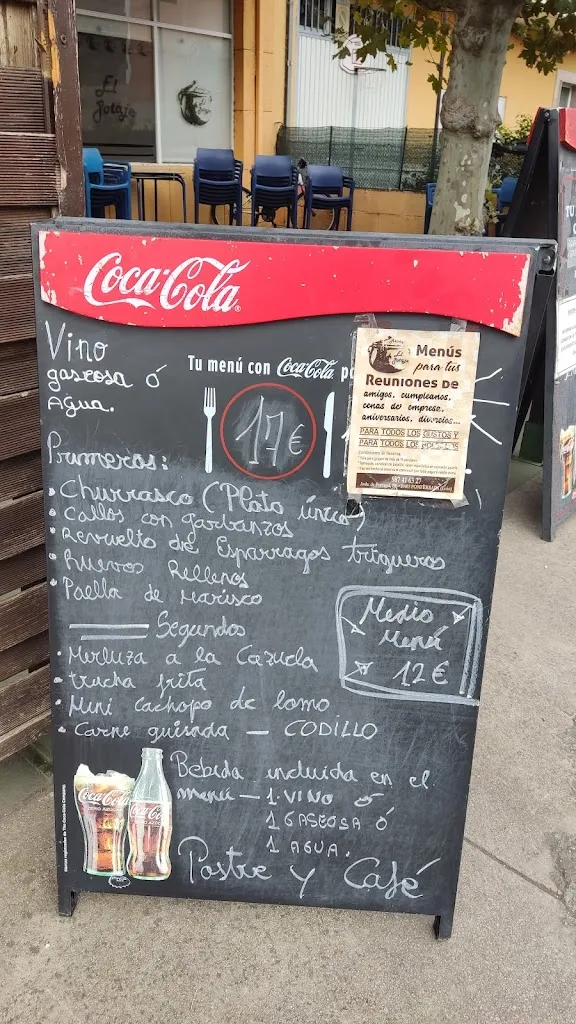 El Potaje
Coca-Cola®
Vino
gaseosa ó
Agua.
Tu menú con Coca-Cola
17€
El Potaje
Menús
para tus
Reuniones de
amigos, cumpleaños,
cenas de empresa,
aniversarios, divorcios...
PARA TODOS LOS GUSTOS Y
PARA TODOS LOS BOLSILLOS
987 41 63 27
Primeros:
• Churrasco (Plato único)
• Callos con garbanzos
• Revuelto de Esparragos trigueros
• Huevos Rellenos
• Paella de Marisco
Medio
Menú
12€
Segundos
• Merluza a la Cazuela
• trucha frita
• Mini cachopo de lomo
• Carne guisada — CODILLO
Bebida incluida en el
menú — 1 VINO ó
1 GASEOSA ó
1 AGUA.
Postre y Café
Coca-Cola
Coca-Cola